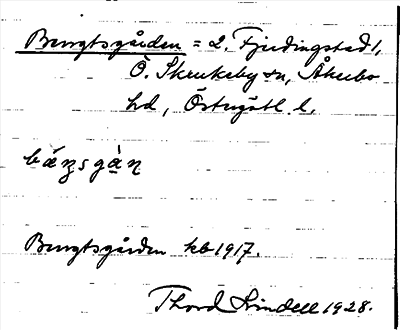 Bengtsgården = 2. Fjerdingstad 1,
Ö. Skrukeby sn, Åkerbo
hd, Östergötl. l.
bæ̀ŋsgàṇ
Bengtsgården kb 1917.
Thord Lindell 1928.